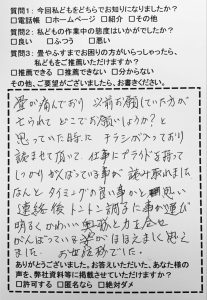 質問1：今回私どもをどちらでお知りになりましたか？
□電話帳 □ホームページ □紹介 □その他
質問2：私どもの作業中の態度はいかがでしたか？
□良い □ふつう □悪い
質問3：畳やふすまでお困りの方がいらっしゃったら、
私どもをご推薦いただけますか？
□推薦できる □推薦できない □分からない
その他、ご要望がございましたら、お書きください。
畳が痛んでおり 以前お願いしていた方が
どこでお願いしようか？と
思っていた時に チラシが入っており
読ませて頂いて 仕事にプライドを持って
しっかりがんばっている事が読み取れました
なんとタイミングの良い事かと思い
連絡後トントン調子に事が運び
明るくかわいい奥様と力を合せ
がんばっている姿がほほえましく思え
ました。 お世話様でした。
ありがとうございました。お答えいただいた、あなた様の
声を、弊社資料等に掲載させていただけますか？
□許可する □匿名なら □絶対ダメ